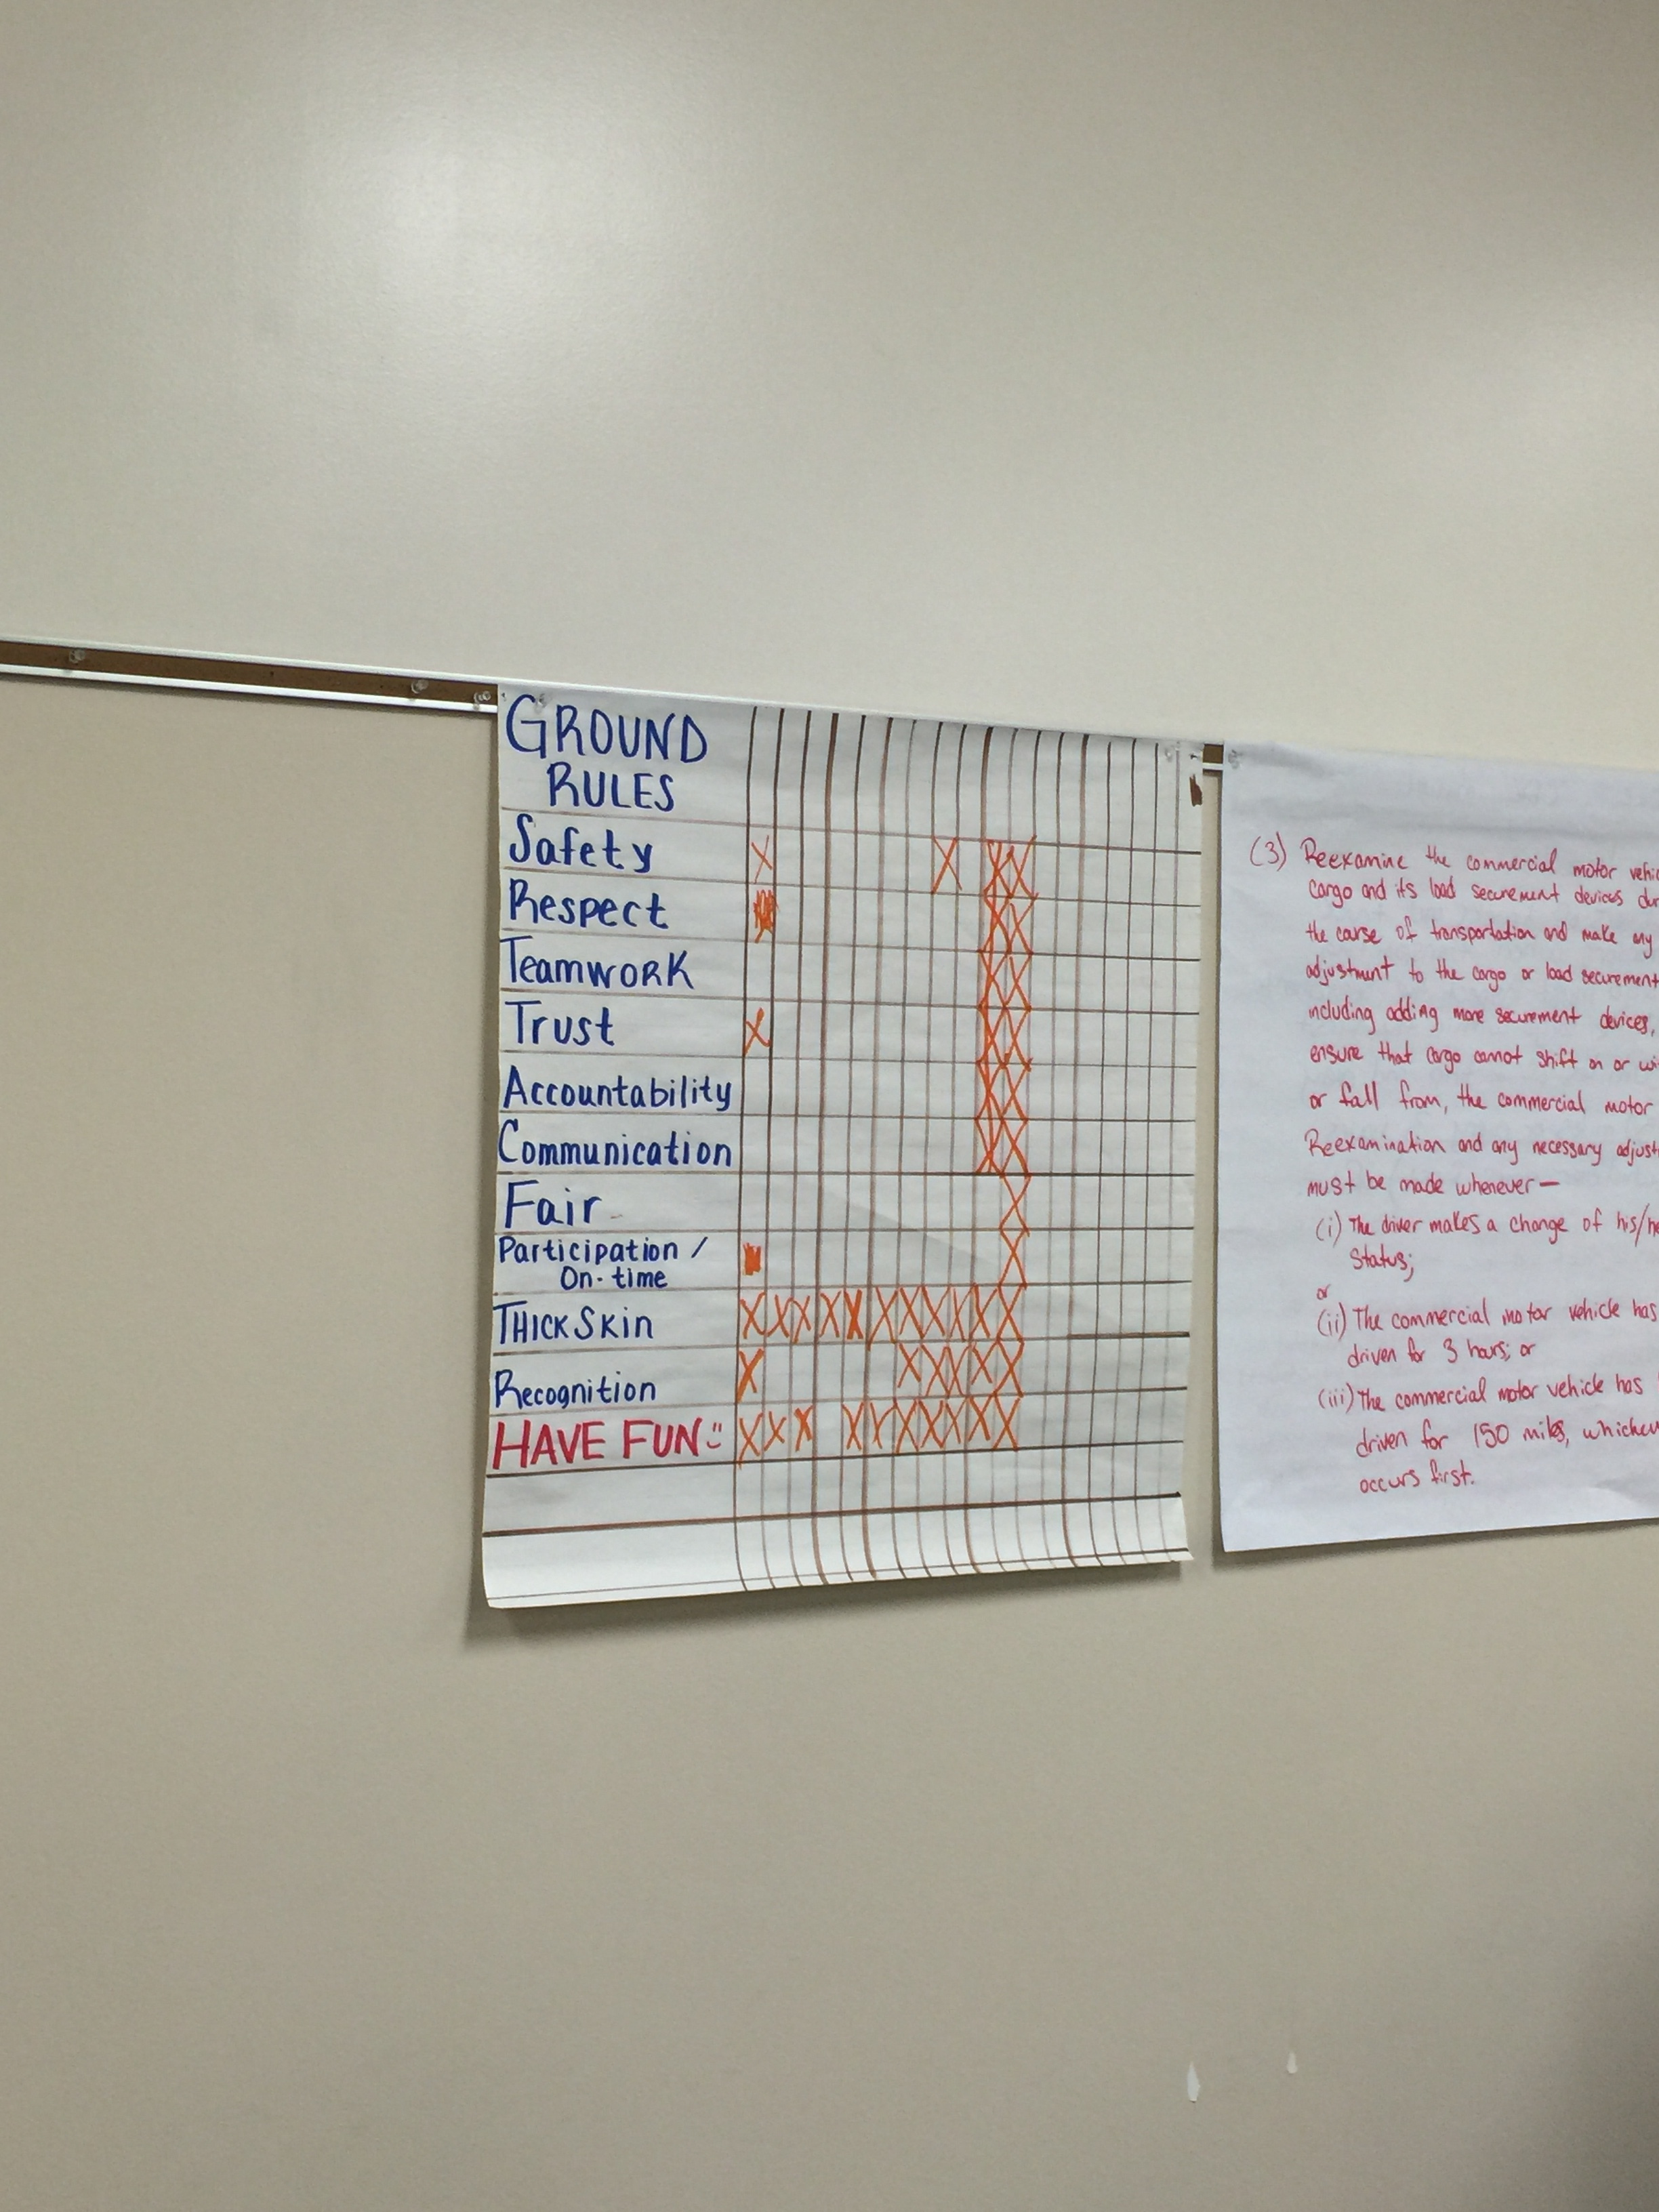 GROUND
RULES
Safety X X X X
Respect X X
Teamwork X X
Trust X X X
Accountability X X
Communication X X
Fair X
Participation / X
On-time
THICK SKin X X X X X X X X X X X
Recognition X X X X X X
HAVE FUN X X X X X X X X X X
(3) Reexamine the commercial motor
cargo and its load securement devices
the carse of transportation and make any
adjustment to the cargo or load securement
including adding more securement devices,
ensure that cargo cannot shift on or
or fall from, the commercial motor
Reexamination and any necessary
must be made whenever —
(i) The driver makes a change of
Status;
or
(ii) The commercial motor vehicle has
driven for 3 hours; or
(iii) The commercial motor vehicle has
driven for 150 miles,
occurs first.